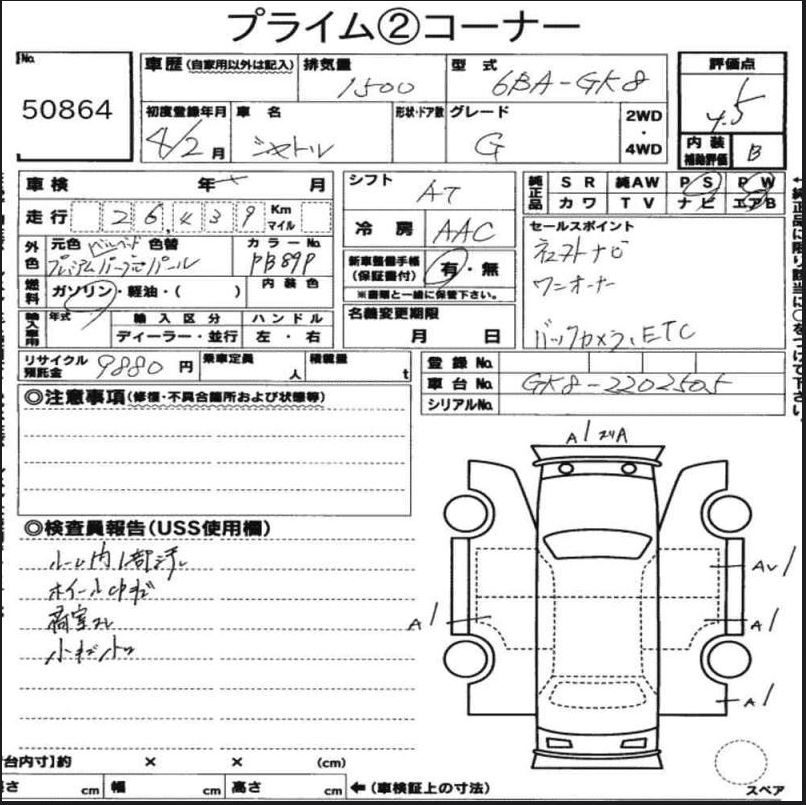 プライム②コーナー
No.
50864
車歴(自家用以外は記入)
排気量
1500
型式
6BA-GK8
評価点
4.5
初度登録年月
4/2月
車名
シャトル
形状・ドア数
グレード
G
2WD
・
4WD
内装
補助評価
B
車検 年 月
走行 26,439 Km
マイル
外色
元色
色替
プレミアム
パール
カラーNo.
PB89P
燃料
ガソリン・軽油・( )
内装色
輸入車用
年式
輸入区分
ディーラー・並行
ハンドル
左・右
シフト
AT
冷房
AAC
新車整備手帳
(保証書付)
有・無
※書類と一緒に保管下さい。
名義変更期限
月 日
純正品
SR 純AW PS PW
カワ TV ナビ エアB
セールスポイント
ナビ
ワンオーナー
バックカメラ, ETC
←純正品に限り該当に○をつけて下さい。
リサイクル
預託金
9880円
乗車定員
人
積載量
t
登録No.
車台No.
GK8-2202505
シリアルNo.
◎注意事項(修復・不具合箇所および状態等)
◎検査員報告(USS使用欄)
ルーム内1部汚レ
ホイール中キズ
荷室スレ
小キズ小凹
A1
A1
AU1
A1
A1
台内寸】約 × × (cm)
長さ cm 幅 cm 高さ cm ←(車検証上の寸法)
スペア